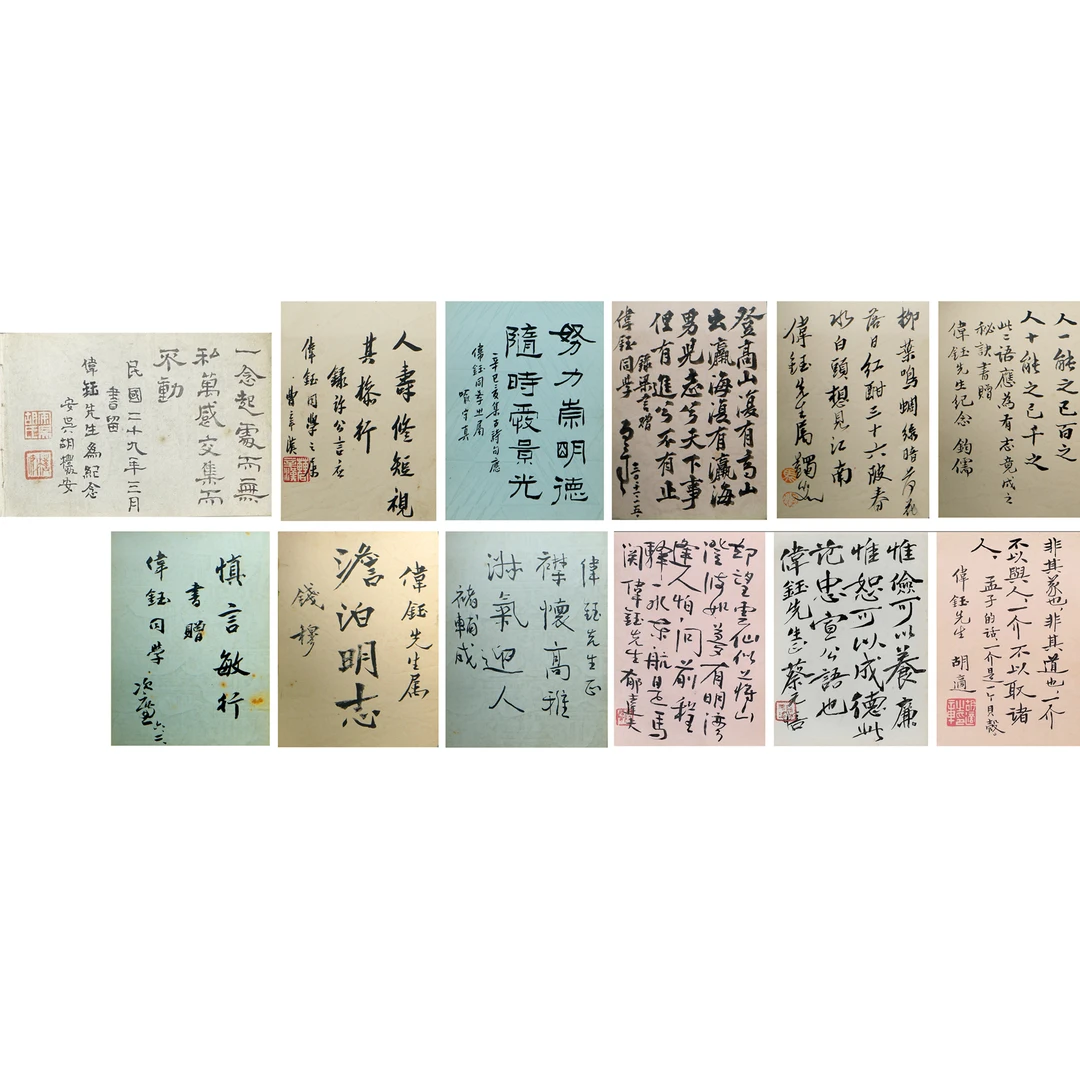 一念起處而無
私萬感交集而
不動
民國二十九年三月
書留
偉鈺先生為紀念
安吳胡樸安
人壽修短視
其操行
錄許公言応
偉鈺同學之屬
努力崇明德
隨時愛景光
辛巳亥集古詩句應
偉鈺同學世屬
登高山復有高山
出瀛海復有瀛海
男兒志兮天下事
但有進兮不有止
錄梁言贈
偉鈺同學
柳葉鳴蜩綠暗荷花
落日紅酣三十六陂春
水白頭想見江南
偉鈺先生屬
人一能之己百之
人十能之己千之
此二語應為有志竟成之
秘訣書贈
偉鈺先生紀念 鈞儒
慎言敏行
書贈
偉鈺同學
偉鈺先生屬
澹泊明志
錢穆
偉鈺先生正
襟懷高雅
淋氣迎人
褚輔成
却望雲仙似蔣山
澄波如夢有明灣
逢人怕問前程
驛一水東航是馬
関 偉鈺先生 郁達夫
惟儉可以養廉
惟恕可以成德此
范忠宣公語也
偉鈺先生正 蔡元培
非其義也非其道也一介
不以與人一介不以取諸
人。 孟子的話一介是一個貝殼。
偉鈺先生 胡適